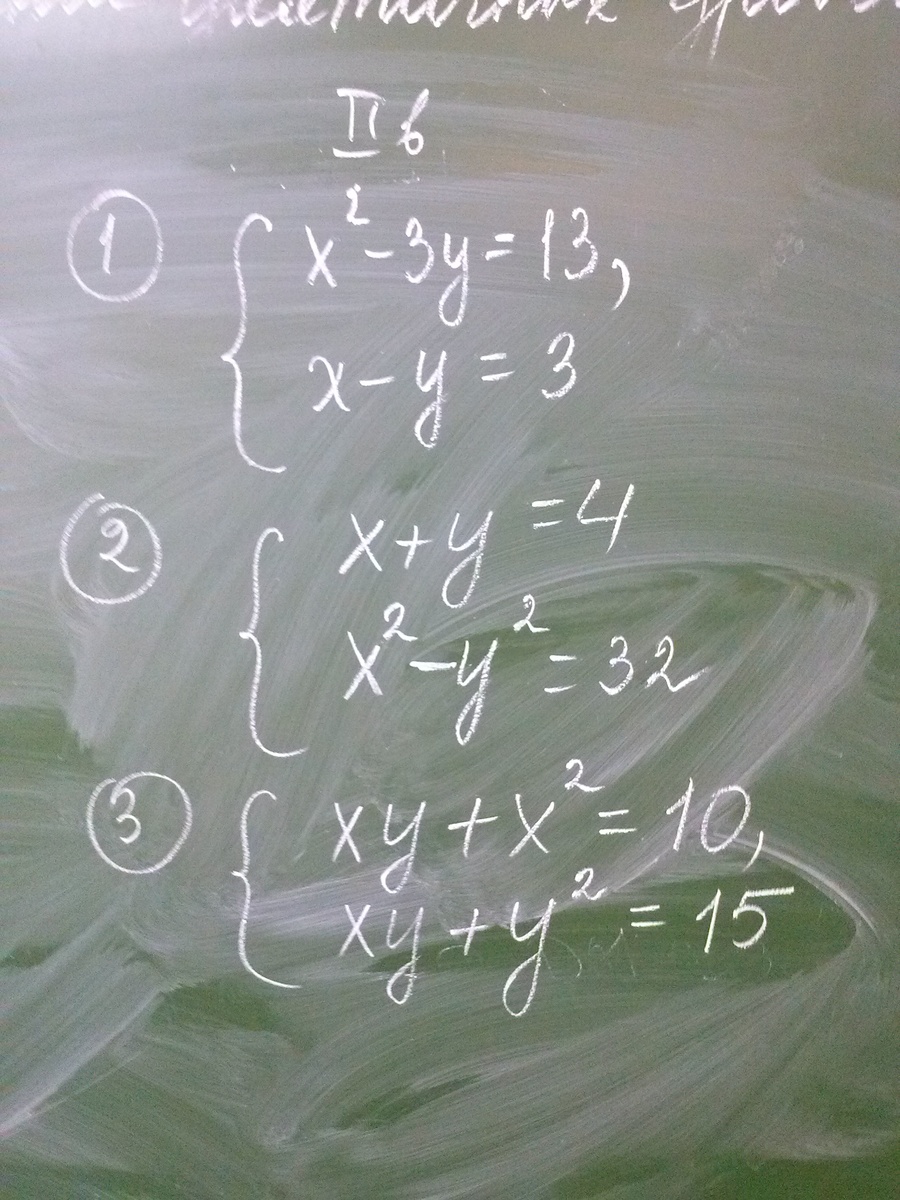 II в
1
x² - 3y = 13,
x - y = 3
2
x + y = 4
x² - y² = 32
3
xy + x² = 10,
xy + y² = 15